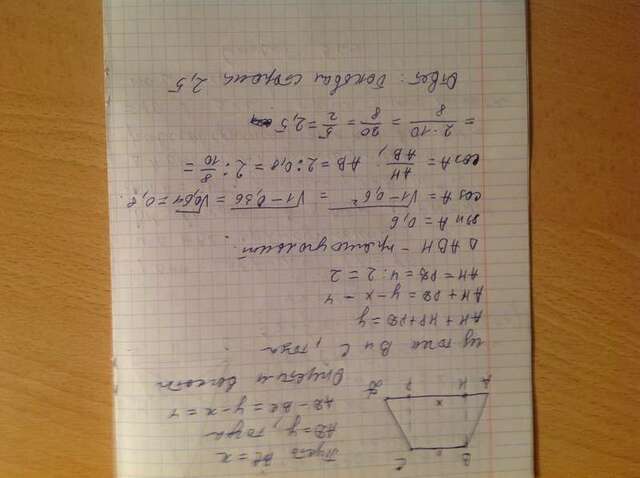 B C
A H P D
x
Пусть BC = x
AD = y, тогда
AD - BC = y - x = 4
Опустим высоты
из точек B и C, тогда
AH + HP + PD = y
AH + PD = y - x - 4
AH = PD = 4 : 2 = 2
Δ ABH - прямоугольн.
sin A = 0,6
cos A = √1-0,6² = √1-0,36 = √0,64 = 0,8.
cos A = AH/AB ; AB = 2 : 0,8 = 2 : 8/10 =
= 2·10/8 = 20/8 = 5/2 = 2,5
Ответ: боковая сторона 2,5